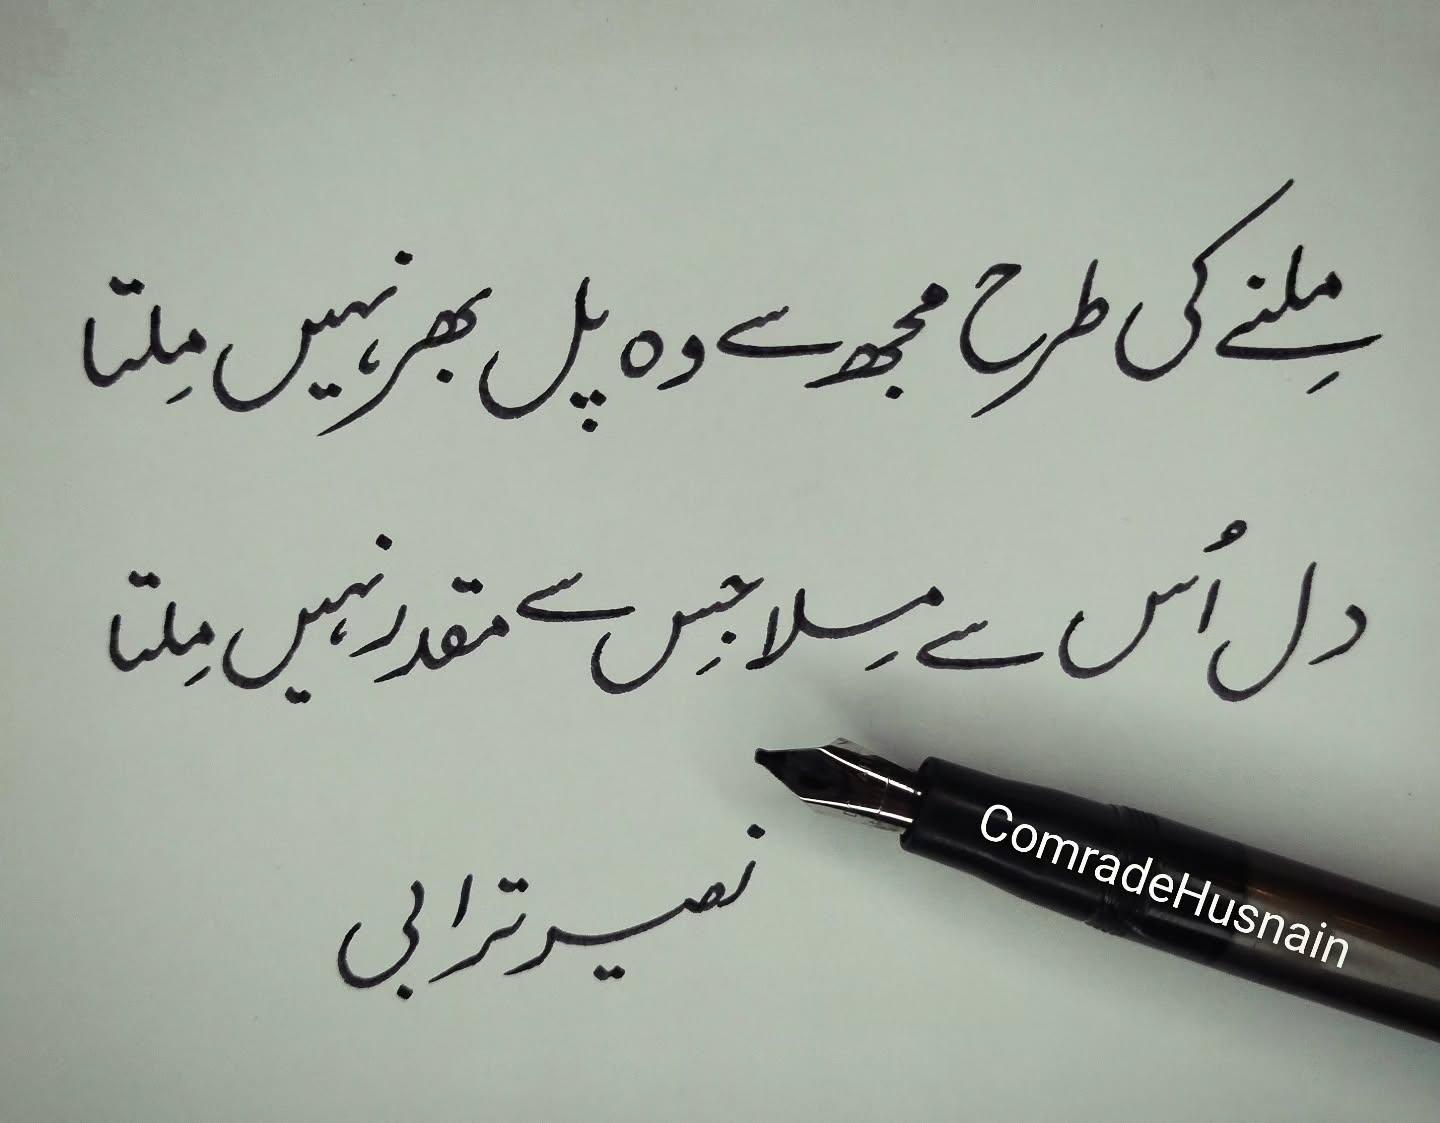 مِلنے کی طرح مجھ سے وہ پل بھر نہیں مِلتا
دل اُس سے مِلا جِس سے مقدر نہیں مِلتا
نصیر ترابی
ComradeHusnain